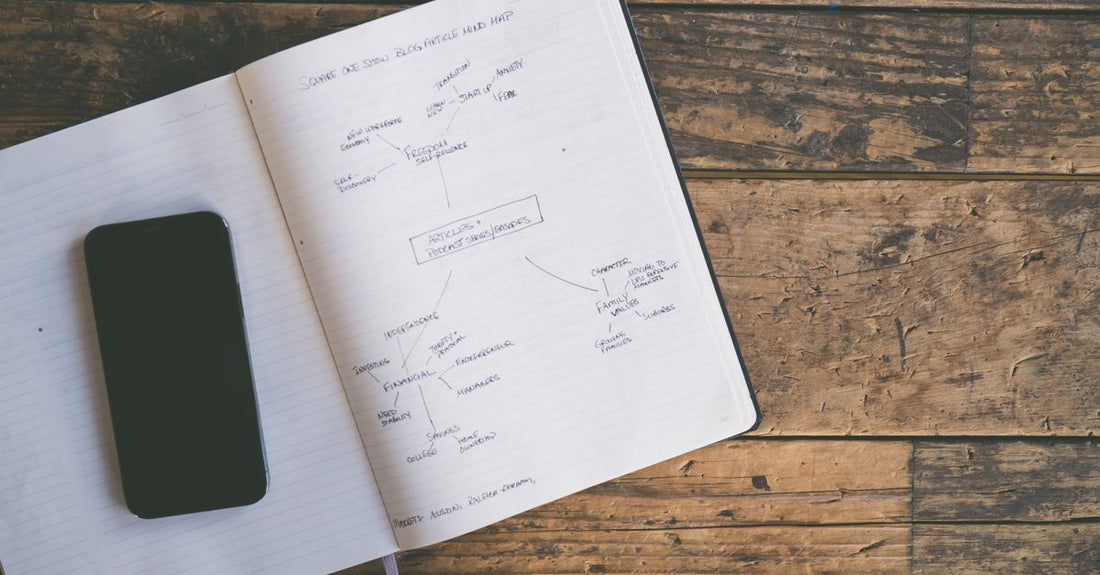 SQUARE ONE SHOW BLOG ARTICLE MIND MAP
TRANSITION
ANXIETY
LEARN
NEW
START UP
FEAR
NEW WORKFORCE
ECONOMY
FREEDOM
SELF-RELIANCE
SELF-
DISCOVERY
ARTICLES +
PODCAST SERIES/EPISODES
CHARACTER
MOVING TO
LESS EXPENSIVE
MARKETS
FAMILY
VALUES
SUBURBS
GROWING
FAMILIES
INDEPENDENCE
THRIFTY +
PRACTICAL
INVESTING
ENTREPRENEUR
FINANCIAL
MANAGERS
NEED
STABILITY
SAVINGS
HOME
OWNERSHIP
COLLEGE
MARKETS - AUSTIN, RALEIGH-DURHAM,